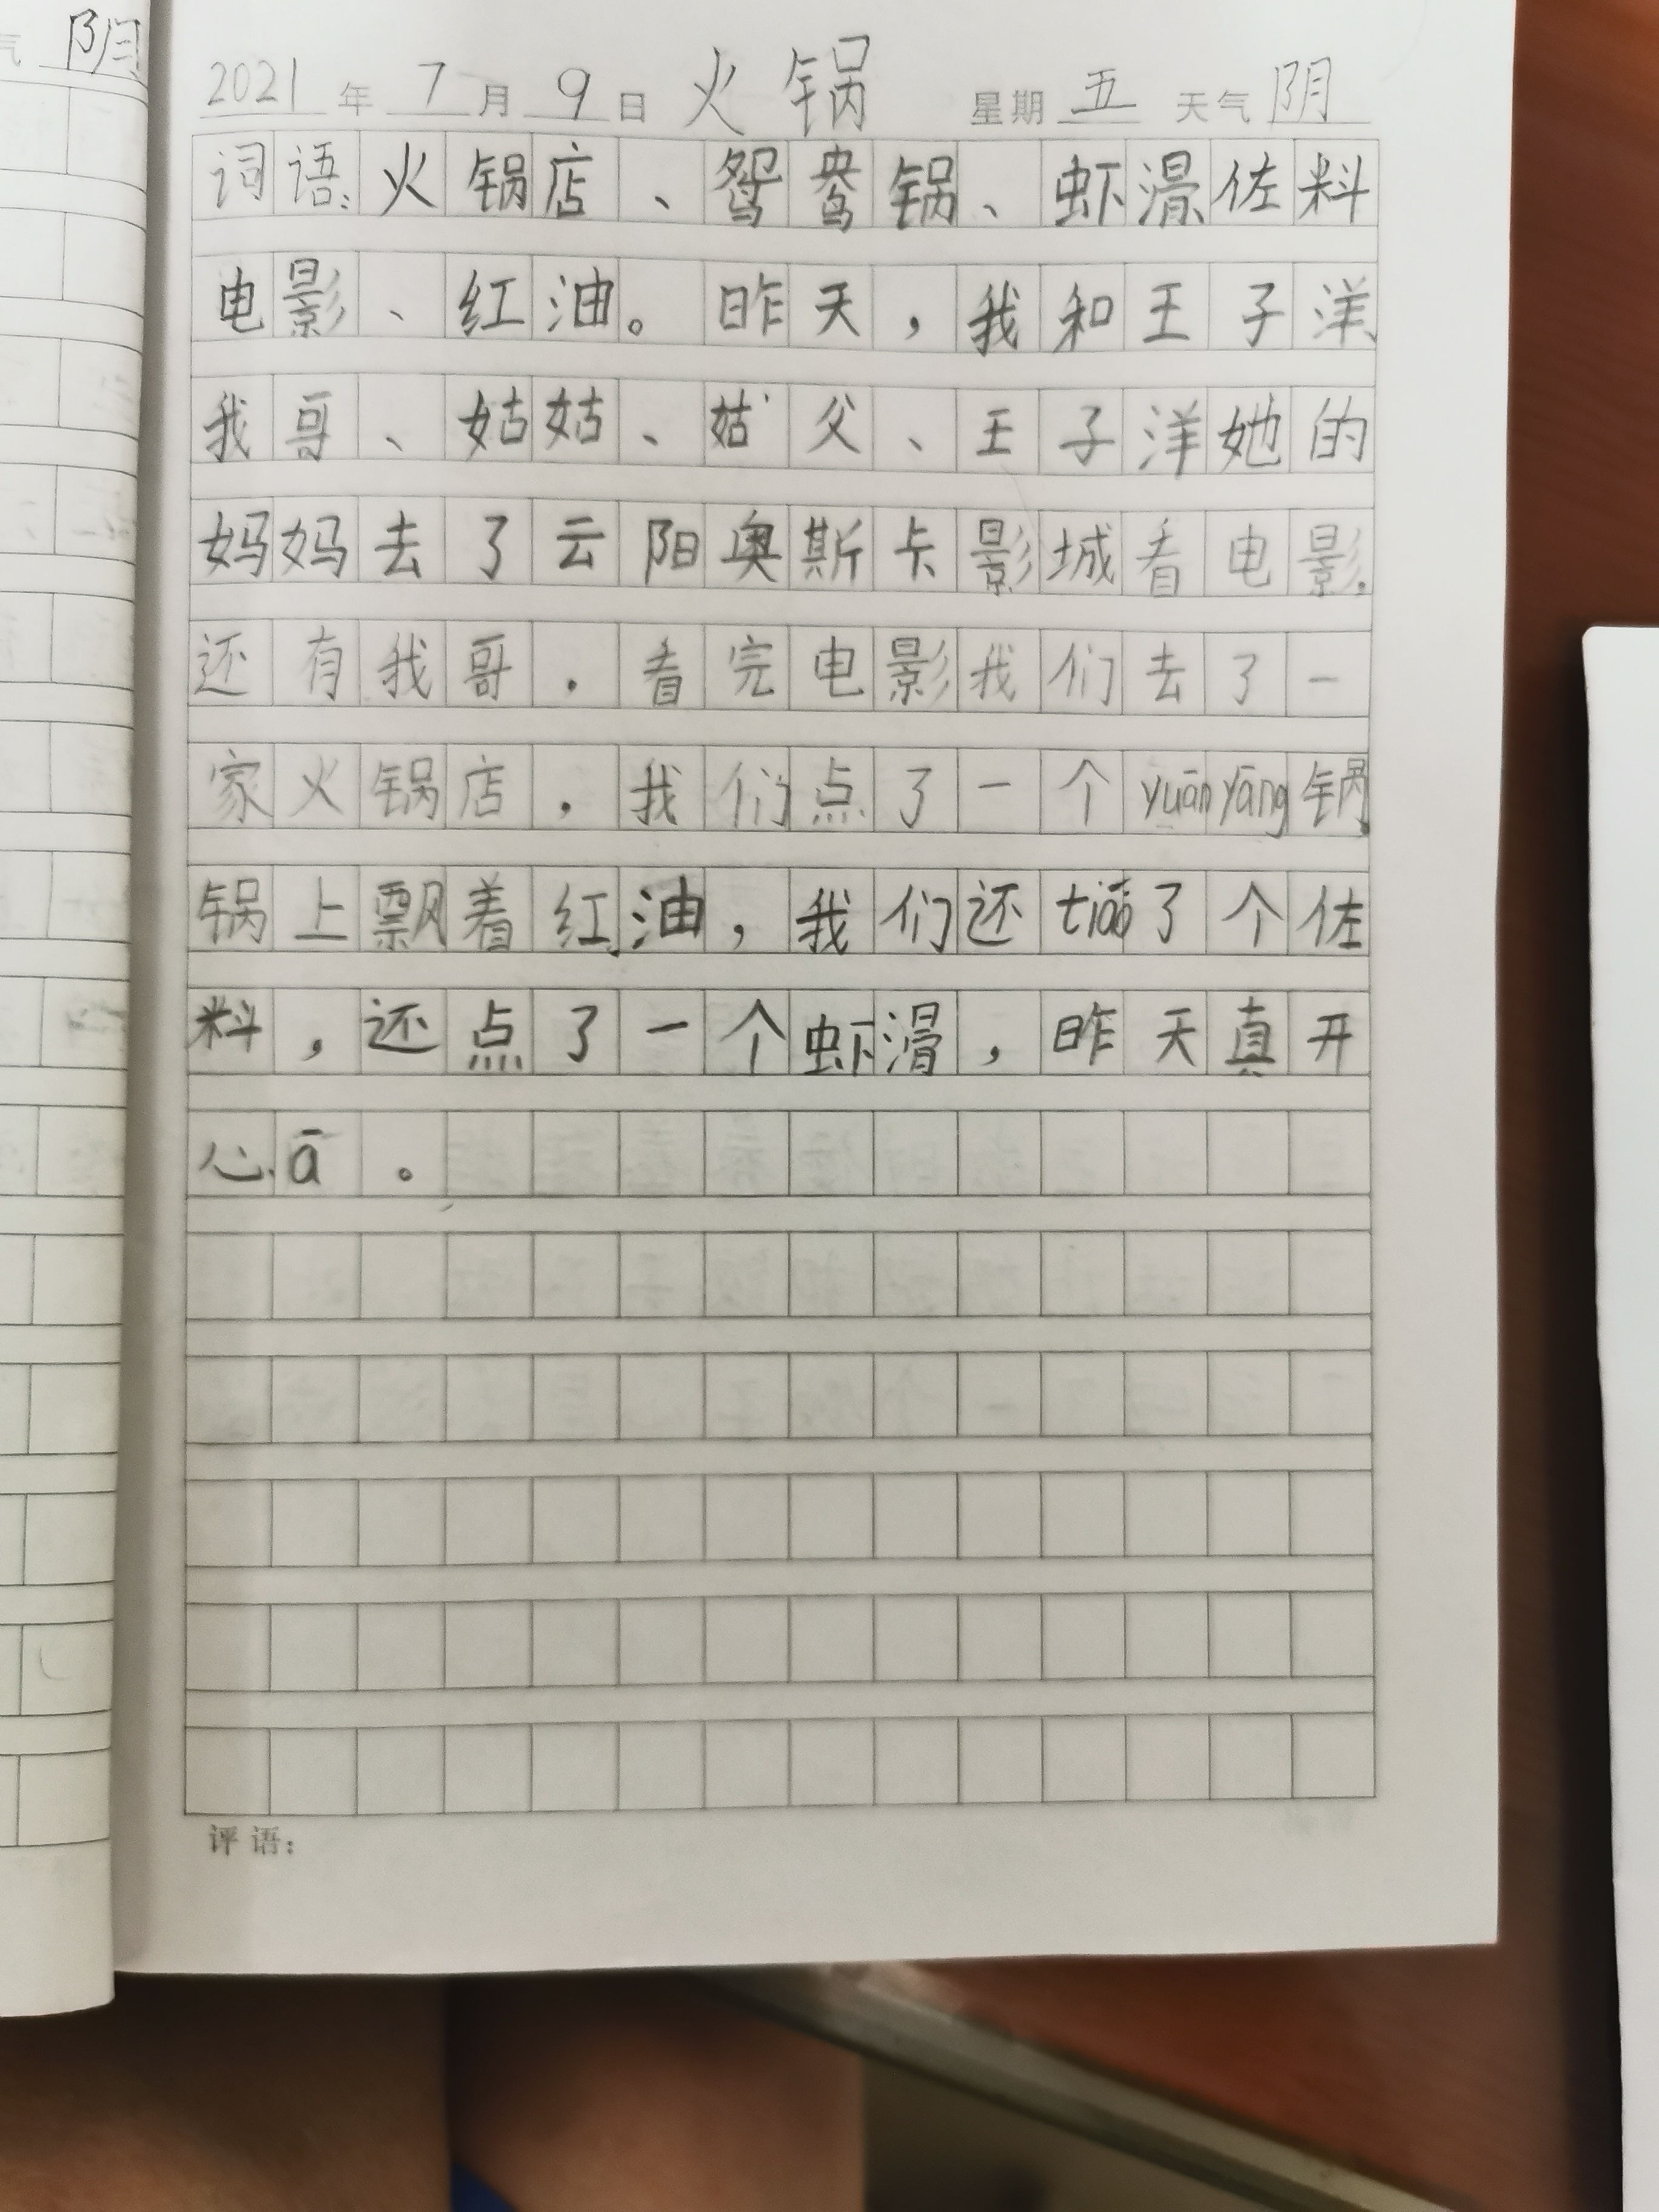 气 阴
2021 年 7 月 9 日 火锅 星期 五 天气 阴
词语:火锅店、鸳鸯锅、虾滑佐料
电影、红油。昨天,我和王子洋、
我哥、姑姑、姑父、王子洋她的
妈妈去了云阳奥斯卡影城看电影,
还有我哥.看完电影我们去了一
家火锅店,我们点了一个yuānyāng锅,
锅上飘着红油,我们还了个佐
料,还点了一个虾滑,昨天真开
心ā。
评语: